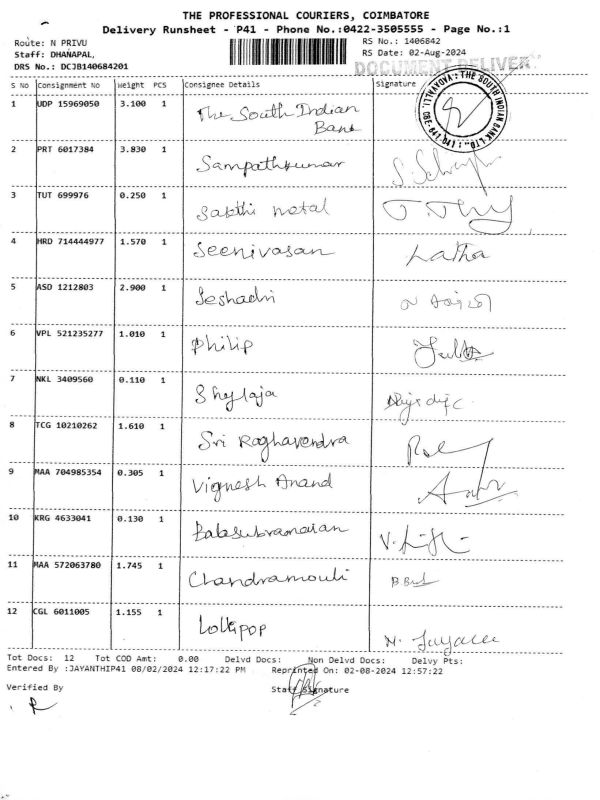 THE PROFESSIONAL COURIERS, COIMBATORE
Delivery Runsheet - P41 - Phone No.:0422-3505555 - Page No.:1
Route: N PRIVU
RS No.: 1406842
Staff: DHANAPAL,
RS Date: 02-Aug-2024
DRS No.: DCJB140684201
DOCUMENT DELIVER
S No Consignment No Weight PCS Consignee Details Signature
THE SOUTH INDIAN BANK LTD.
1 UDP 15969050 3.100 1 The South Indian
Bank
2 PRT 6017384 3.830 1 Sampathkumar
3 TUT 699976 0.250 1 Sakthi metal
4 HRD 714444977 1.570 1 Seenivasan Latha
5 ASD 1212803 2.900 1 Seshadri
6 VPL 521235277 1.010 1 Philip
7 NKL 3409560 0.110 1 Shylaja
8 TCG 10210262 1.610 1 Sri Raghavendra
9 MAA 704985354 0.305 1 Vignesh Anand
10 KRG 4633041 0.130 1 Balasubramanian
11 MAA 572063780 1.745 1 Chandramouli
12 CGL 6011005 1.155 1 Lollipop
Tot Docs: 12 Tot COD Amt: 0.00 Delvd Docs: Non Delvd Docs: Delvy Pts:
Entered By :JAYANTHIP41 08/02/2024 12:17:22 PM Reprinted On: 02-08-2024 12:57:22
Verified By Staff Signature